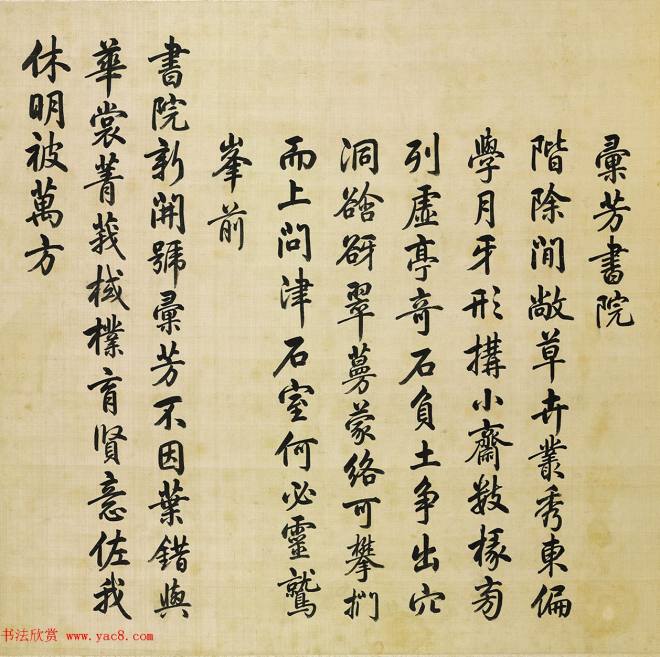 彙芳書院
階除閒敞草卉叢秀東偏
學月牙形搆小齋數椽旁
列虛亭奇石負土争出穴
洞谽谺翠蔓蒙絡可攀捫
而上問津石室何必靈鷲
峯前
書院新開號彙芳不因葉錯與
華裳菁莪棫樸育賢意佐我
休明被萬方
书法欣赏 www.yac8.com